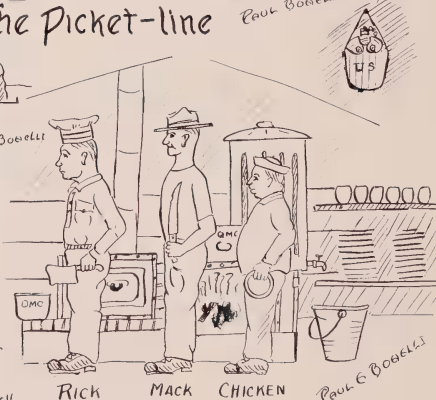 he Picket-line
PAUL BOGELLI
US
Bogelli
QMC
QMC
RICK MACK CHICKEN
PAUL G BOGELLS